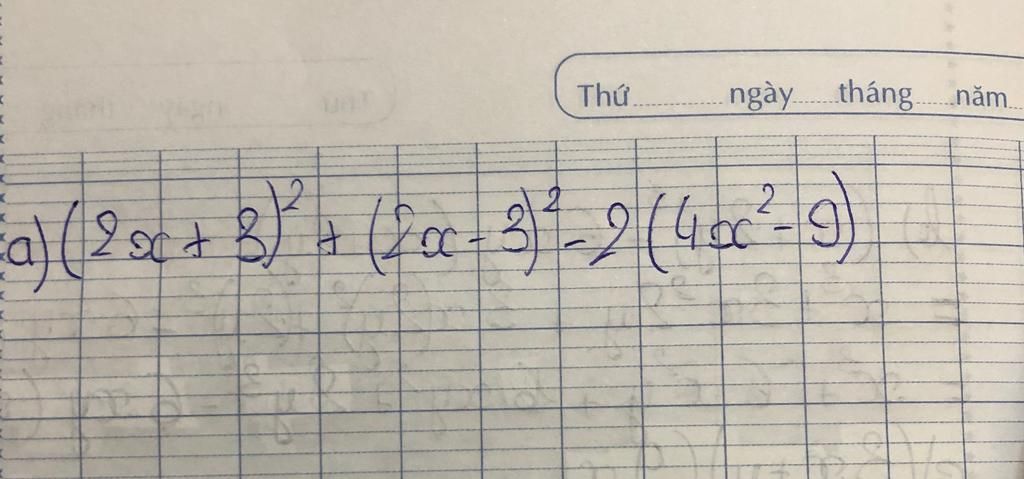 Thứ ngày tháng năm
a) (2x + 3)² + (2x - 3)² - 2 (4x² - 9)